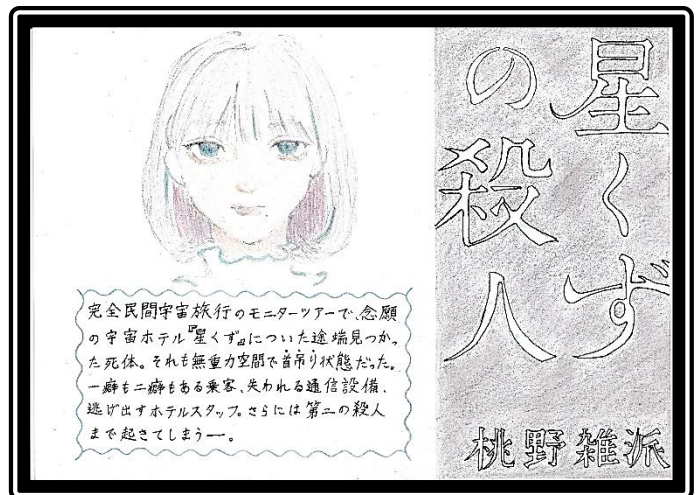 星くず
の殺人
桃野雑派
完全民間宇宙旅行のモニターツアーで、念願
の宇宙ホテル『星くず』についた途端見つかっ
た死体。それも無重力空間で首吊り状態だった。
一癖も二癖もある乗客、失われる通信設備、
逃げ出すホテルスタッフ。さらには第二の殺人
まで起きてしまうー。